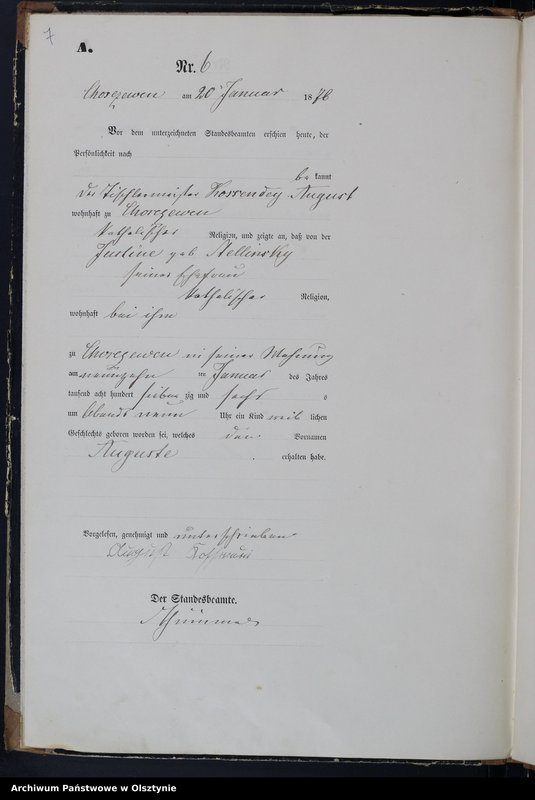 7
A.
Nr. 6
Chorczewen am 20 Januar 1876
Vor dem unterzeichneten Standesbeamten erschien heute, der
Persönlichkeit nach
be kannt
der Tischlermeister August
wohnhaft zu Chorczewen
katholischer Religion, und zeigte an, daß von der
Justine geb Stellinsky
seiner Ehefrau
katholischer Religion,
wohnhaft bei ihm
zu Chorczewen in seiner Wohnung
am neunzehn ten Januar des Jahres
tausend acht hundert sieben zig und sechs
um Abends neun Uhr ein Kind weib lichen
Geschlechts geboren worden sei, welches den Vornamen
Auguste erhalten habe.
Vorgelesen, genehmigt und unterschrieben
August
Der Standesbeamte.
Archiwum Państwowe w Olsztynie